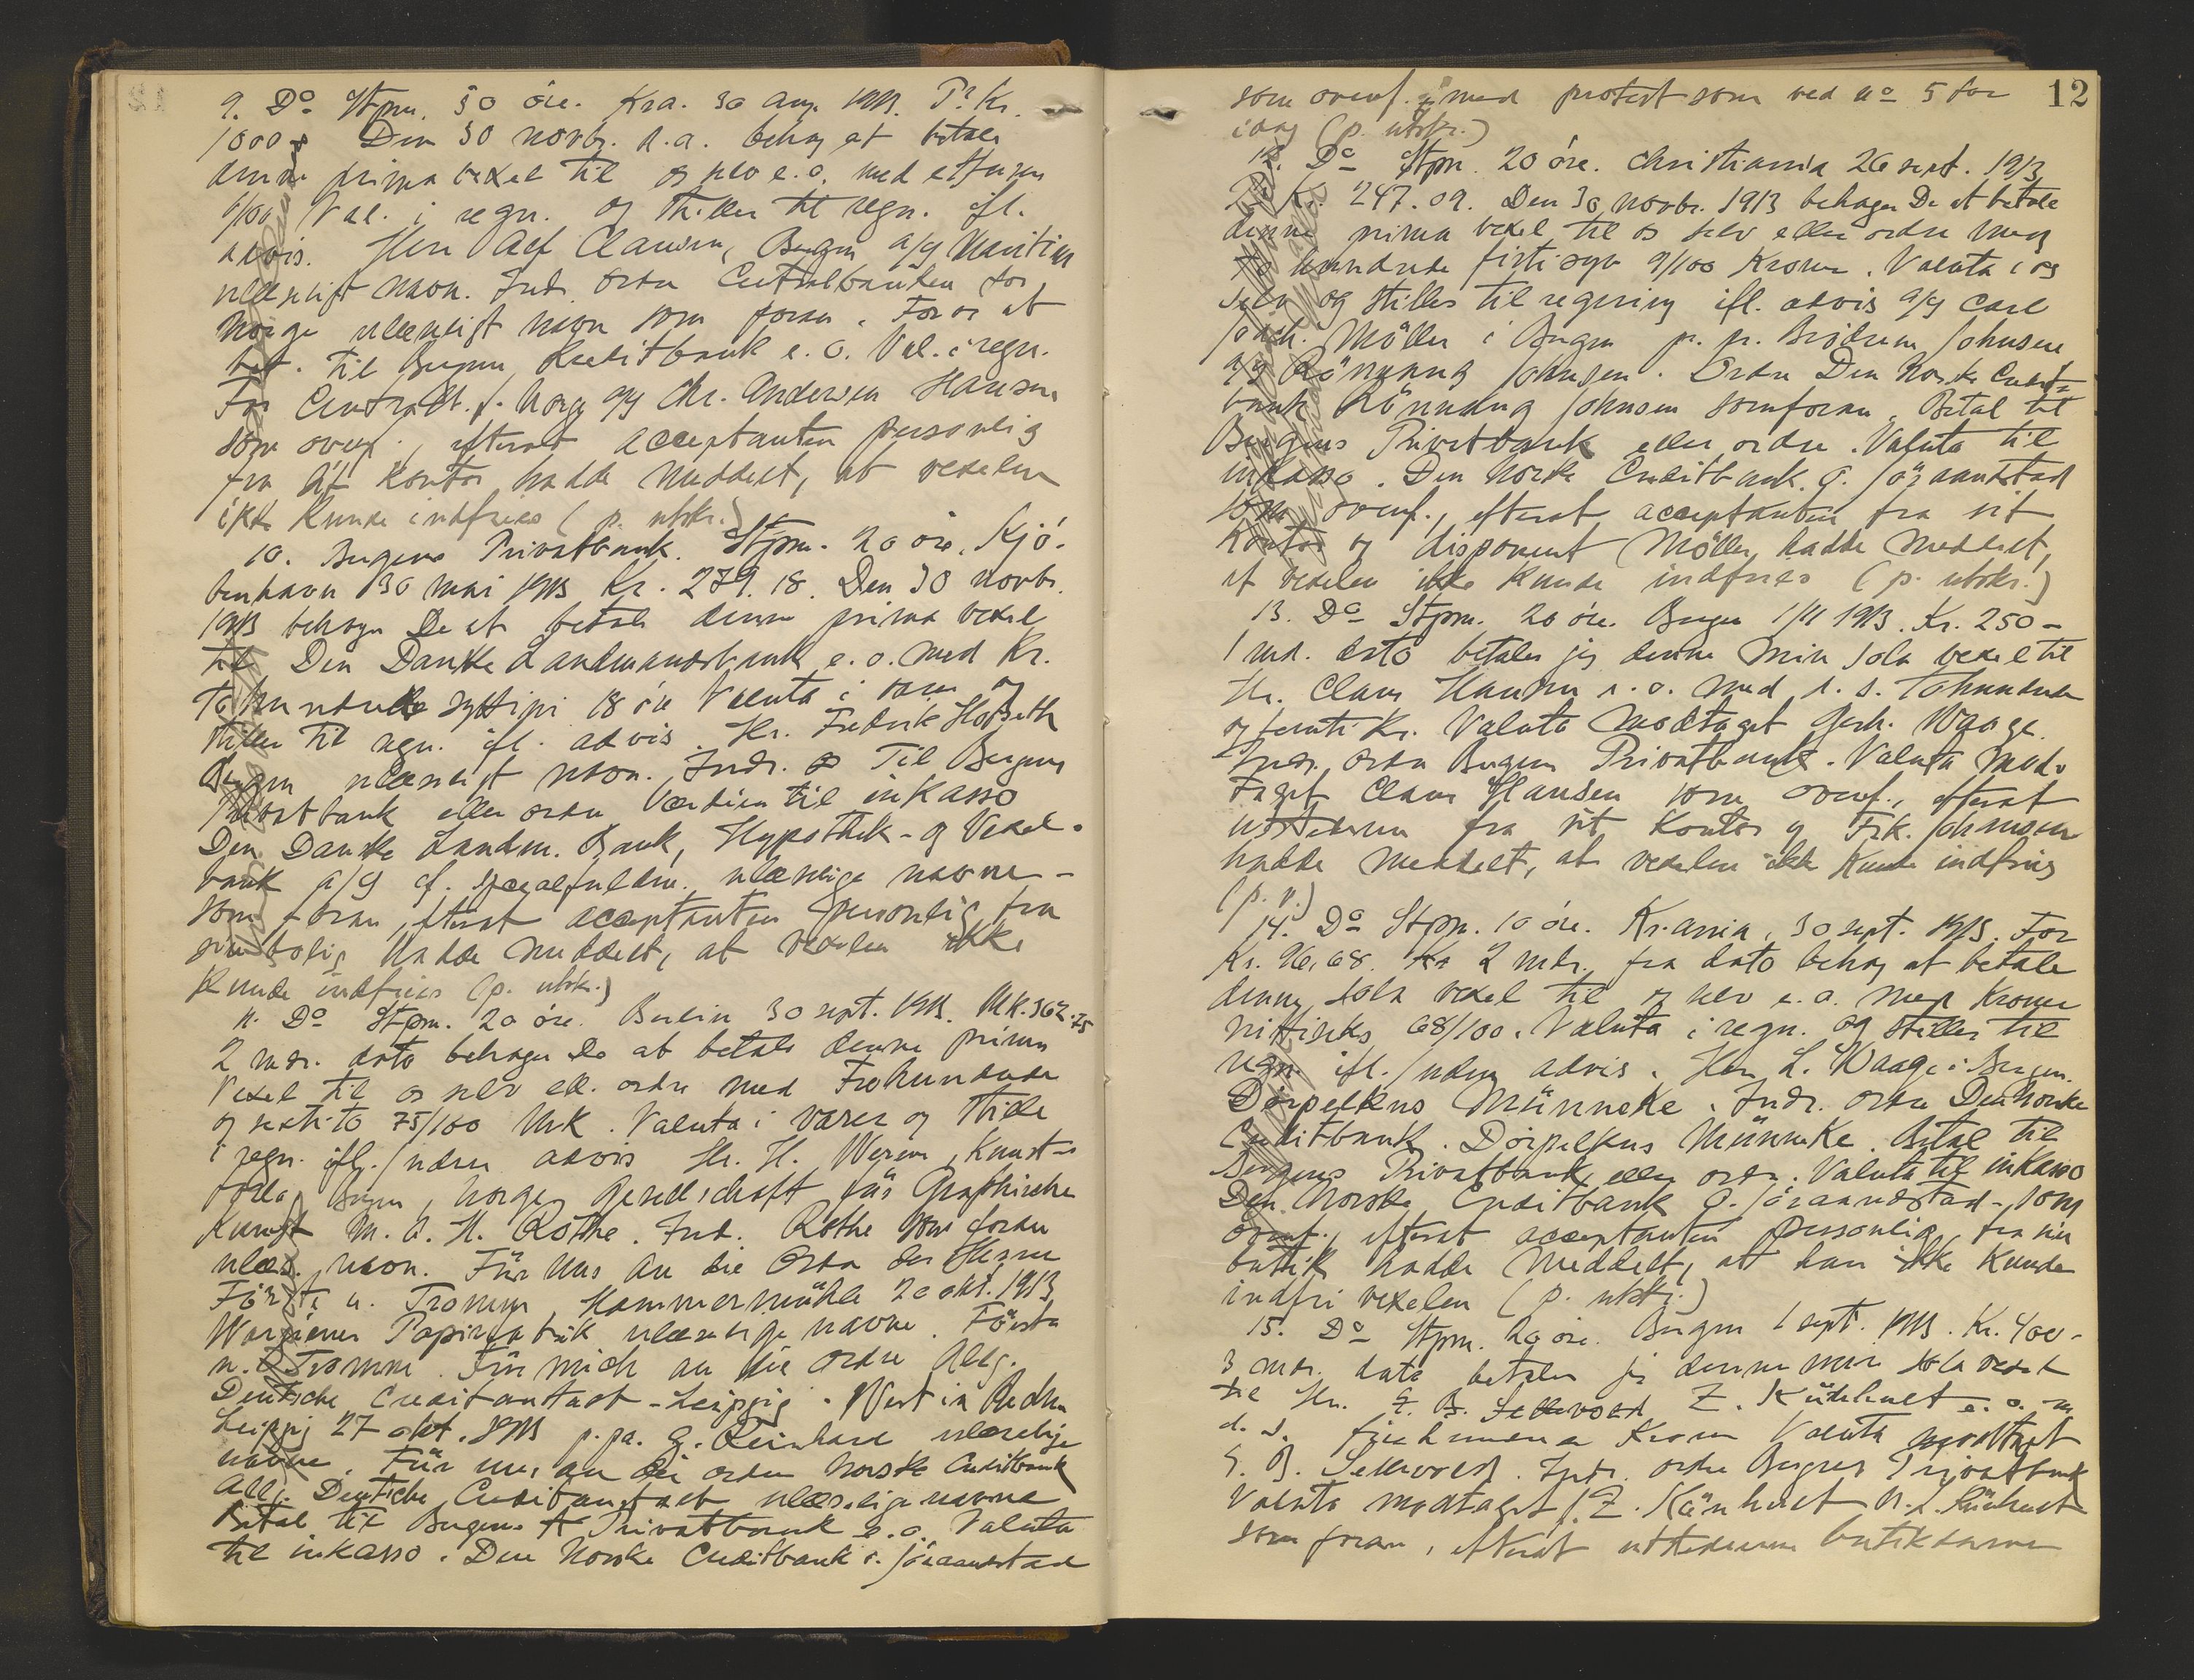 9. Do Stpm. 50 öre. Kra. 30 aug. 1913. Pr Kr.
1000 Den 30 novbr. d.a. behag at betale
denne prima vexel til os selv e.o. med ettusen
0/00 Val. i regn. og stilles til regn. ifl.
advis. Herr Alf Clausen, Bergen a/g Maritim
ulæseligt navn. Ind. ordre Centralbanken for
Norge ulæseligt navn som foran. For os at
bet. til Bergens Kreditbank e.o. Val. i regn.
For Centralb. f. Norge a/g Chr. Andersen Hansen
som ovenf., efterat acceptanten personlig
fra sit kontor hadde meddelt, at vexelen
ikke kunde indfries (p. utskr.)
10. Bergens Privatbank. Stpm. 20 öre. Kjö-
benhavn 30 mai 1913 Kr. 279.18. Den 30 novbr.
1913 behager De at betale denne prima vexel
til Den Danske Landmandsbank e.o. med Kr.
Tohundrede syttini 18 öre Valuta i varer og
stilles til regn. ifl. advis. Hr. Fredrik Hofseth
Bergen ulæseligt navn. Indr. Til Bergens
Privatbank eller ordre Værdien til inkasso
Den Danske Landm. Bank, Hypothek- og Vexel-
bank a/g cf. specialfuldm. ulæselige navne -
som foran, efterat acceptanten personlig fra
sin bolig hadde meddelt, at vexelen ikke
kunde indfries (p. utskr.)
11. Do Stpm. 20 öre. Berlin 30 sept. 1913. Mk. 362.75
2 mdr. dato behager De at betale denne prima
Vexel til os selv ell. ordre med Trehundrede
og sextito 75/100 Mrk. Valuta i varer og stilles
i regn. ifl. /uden advis Hr. H. Werem, Kunst-
forla, Bergen, Norge, Gesellschaft für Graphische
Kunst M.A.H. Rothe. Ind. Rothe som foran
ulæs. navn. Für uns an die Ordre der Herren
Förste u. Tromm, Hammermühle 20 okt. 1913
Warziener Papirfabrik ulæselige navne. Förste
u. Tromm. Für mich an die ordre Allg.
Deutsche Creditanstalt - Leipzig. Wert in Rechn
Leipzig 27 okt. 1913 p.pa. G. Reinhard ulæselige
navne. Für uns an die ordre Norske Creditbank
Allg. Deutsche Creditanstalt ulæselige navne
Betal til Bergens Privatbank e.o. Valuta
til inkasso. Den Norske Creditbank G. Jöraandstad
12
som ovenf. med protest som ved no 5 for
idag (p. utskr.)
12. Do Stpm. 20 öre. Christiania 26 sept. 1913
Kr. 247.09. Den 30 novbr. 1913 behager De at betale
denne prima vexel til os selv eller ordre med
To hundrede firtisyv 9/100 Kroner. Valuta i os
selv og stilles til regning ifl. advis a/g Carl
Joach. Möller i Bergen pr. pr. Brödrene Johnsen
a/g Rönnaug Johnsen. Ordre Den Norske Credit-
bank Rönnaug Johnsen som foran. Betal til
Bergens Privatbank eller ordre. Valuta til
inkasso. Den Norske Creditbank. G. Jöraandstad
som ovenf., efterat acceptanten fra sit
kontor og disponent Möller hadde meddelt,
at vexelen ikke kunde indfries (p. utskr.)
13. Do Stpm. 20 öre. Bergen 1/11 1913. Kr. 250 -
1 md. dato betaler jeg denne min Sola vexel til
Hr. Claus Hansen e.o. med d. s. Tohundrede
og femti Kr. Valuta modtaget Gerh. Waage.
Indr. ordre Bergens Privatbank. Valuta mod-
taget Claus Hansen som ovenf., efterat
utstederen fra sit kontor g Frk. Johnsen
hadde meddelt, at vexelen ikke kunde indfries
(p. u.)
14. Do Stpm. 10 öre. Kr.ania, 30 sept. 1913. For
Kr. 96,68. 2 mdr. fra dato behag at betale
denne Sola vexel til os selv e.o. med Kroner
nittiseks 68/100. Valuta i regn. og stilles til
regn. ifl. /uden advis. Herr L. Waage i Bergen.
Dörpelkus Münneke. Indr. ordre Den Norske
Creditbank. Dörpelkus Münneke. Betal til
Bergens Privatbank eller ordre. Valuta til inkasso
Den Norske Creditbank G. Jöraandstad - som
ovenf., efterat acceptanten personlig, fra sin
butik hadde meddelt, at han ikke kunde
indfri vexelen (p. utskr.)
15. Do Stpm. 20 öre. Bergen 1 sept. 1913. Kr. 400 -
3 mdr. dato betaler jeg denne min sola vexel
til Hr. S. B. Sellevold Z. Kühhult e.o. m
d. s. firehundrede Kroner Valuta modtaget
S. B. Sellevold. Indr. ordre Bergens Privatbank
Valuta modtaget f. Z. Künhult N. L. Kühhult
som foran, efterat utstederens butikdame